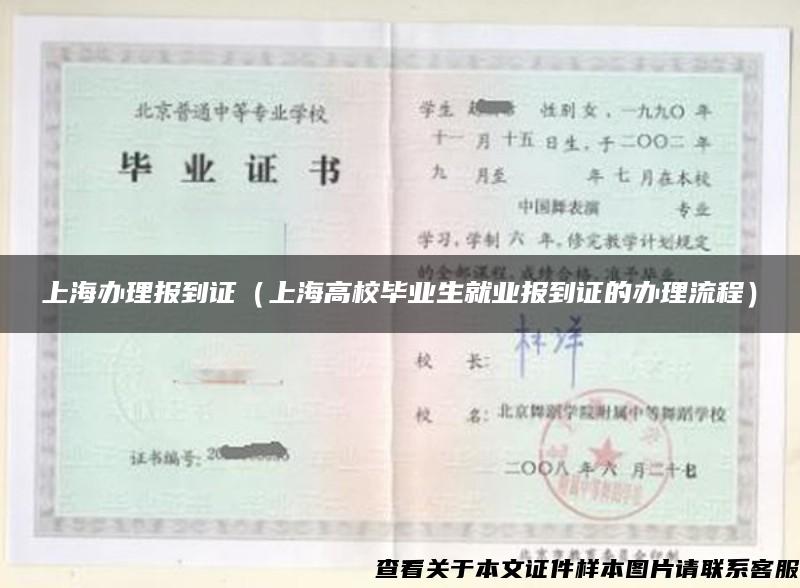 北京普通中等专业学校
毕业证书
证书编号:
学生 性别 女，一九九〇年
十一月十五日生，于二〇〇二年
九月至 年七月在本校
中国舞表演 专业
学习，学制六年，修完教学计划规定
的全部课程，成绩合格，准予毕业。
上海办理报到证（上海高校毕业生就业报到证的办理流程）
校长: 林洋
校名: 北京舞蹈学院附属中等舞蹈学校
二〇〇八年六月二十七日
北京市教育委员会印制
查看关于本文证件样本图片请联系客服